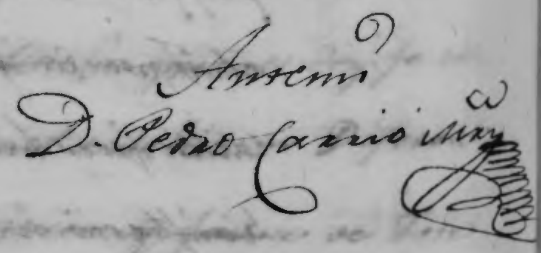 Antemi
D. Pedro Carrio